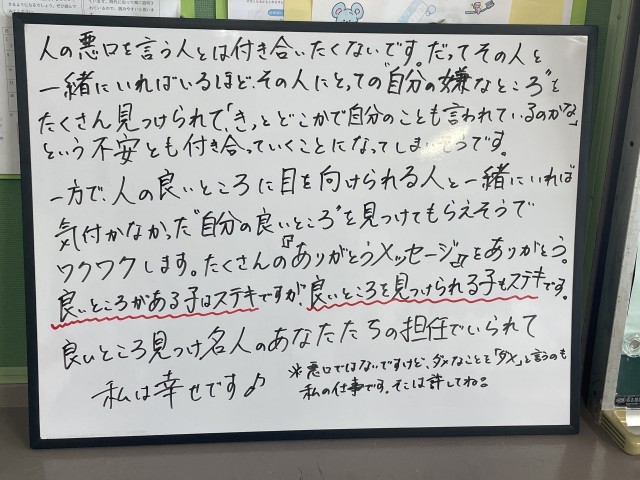 人の悪口を言う人とは付き合いたくないです。だってその人と
一緒にいればいるほど、その人にとっての"自分の嫌なところ"を
たくさん見つけられて、「きっとどこかで自分のことも言われているのかな」
という不安とも付き合っていくことになってしまいそうです。
一方で、人の良いところに目を向けられる人と一緒にいれば
気付かなかった"自分の良いところ"を見つけてもらえそうで
ワクワクします。たくさんの『ありがとうメッセージ』をありがとう。
良いところがある子はステキですが、良いところを見つけられる子もステキです。
良いところ見つけ名人のあなたたちの担任でいられて
私は幸せです♪
※悪口ではないですけど、ダメなことを「ダメ」と言うのも
私の仕事です。そこは許してね。